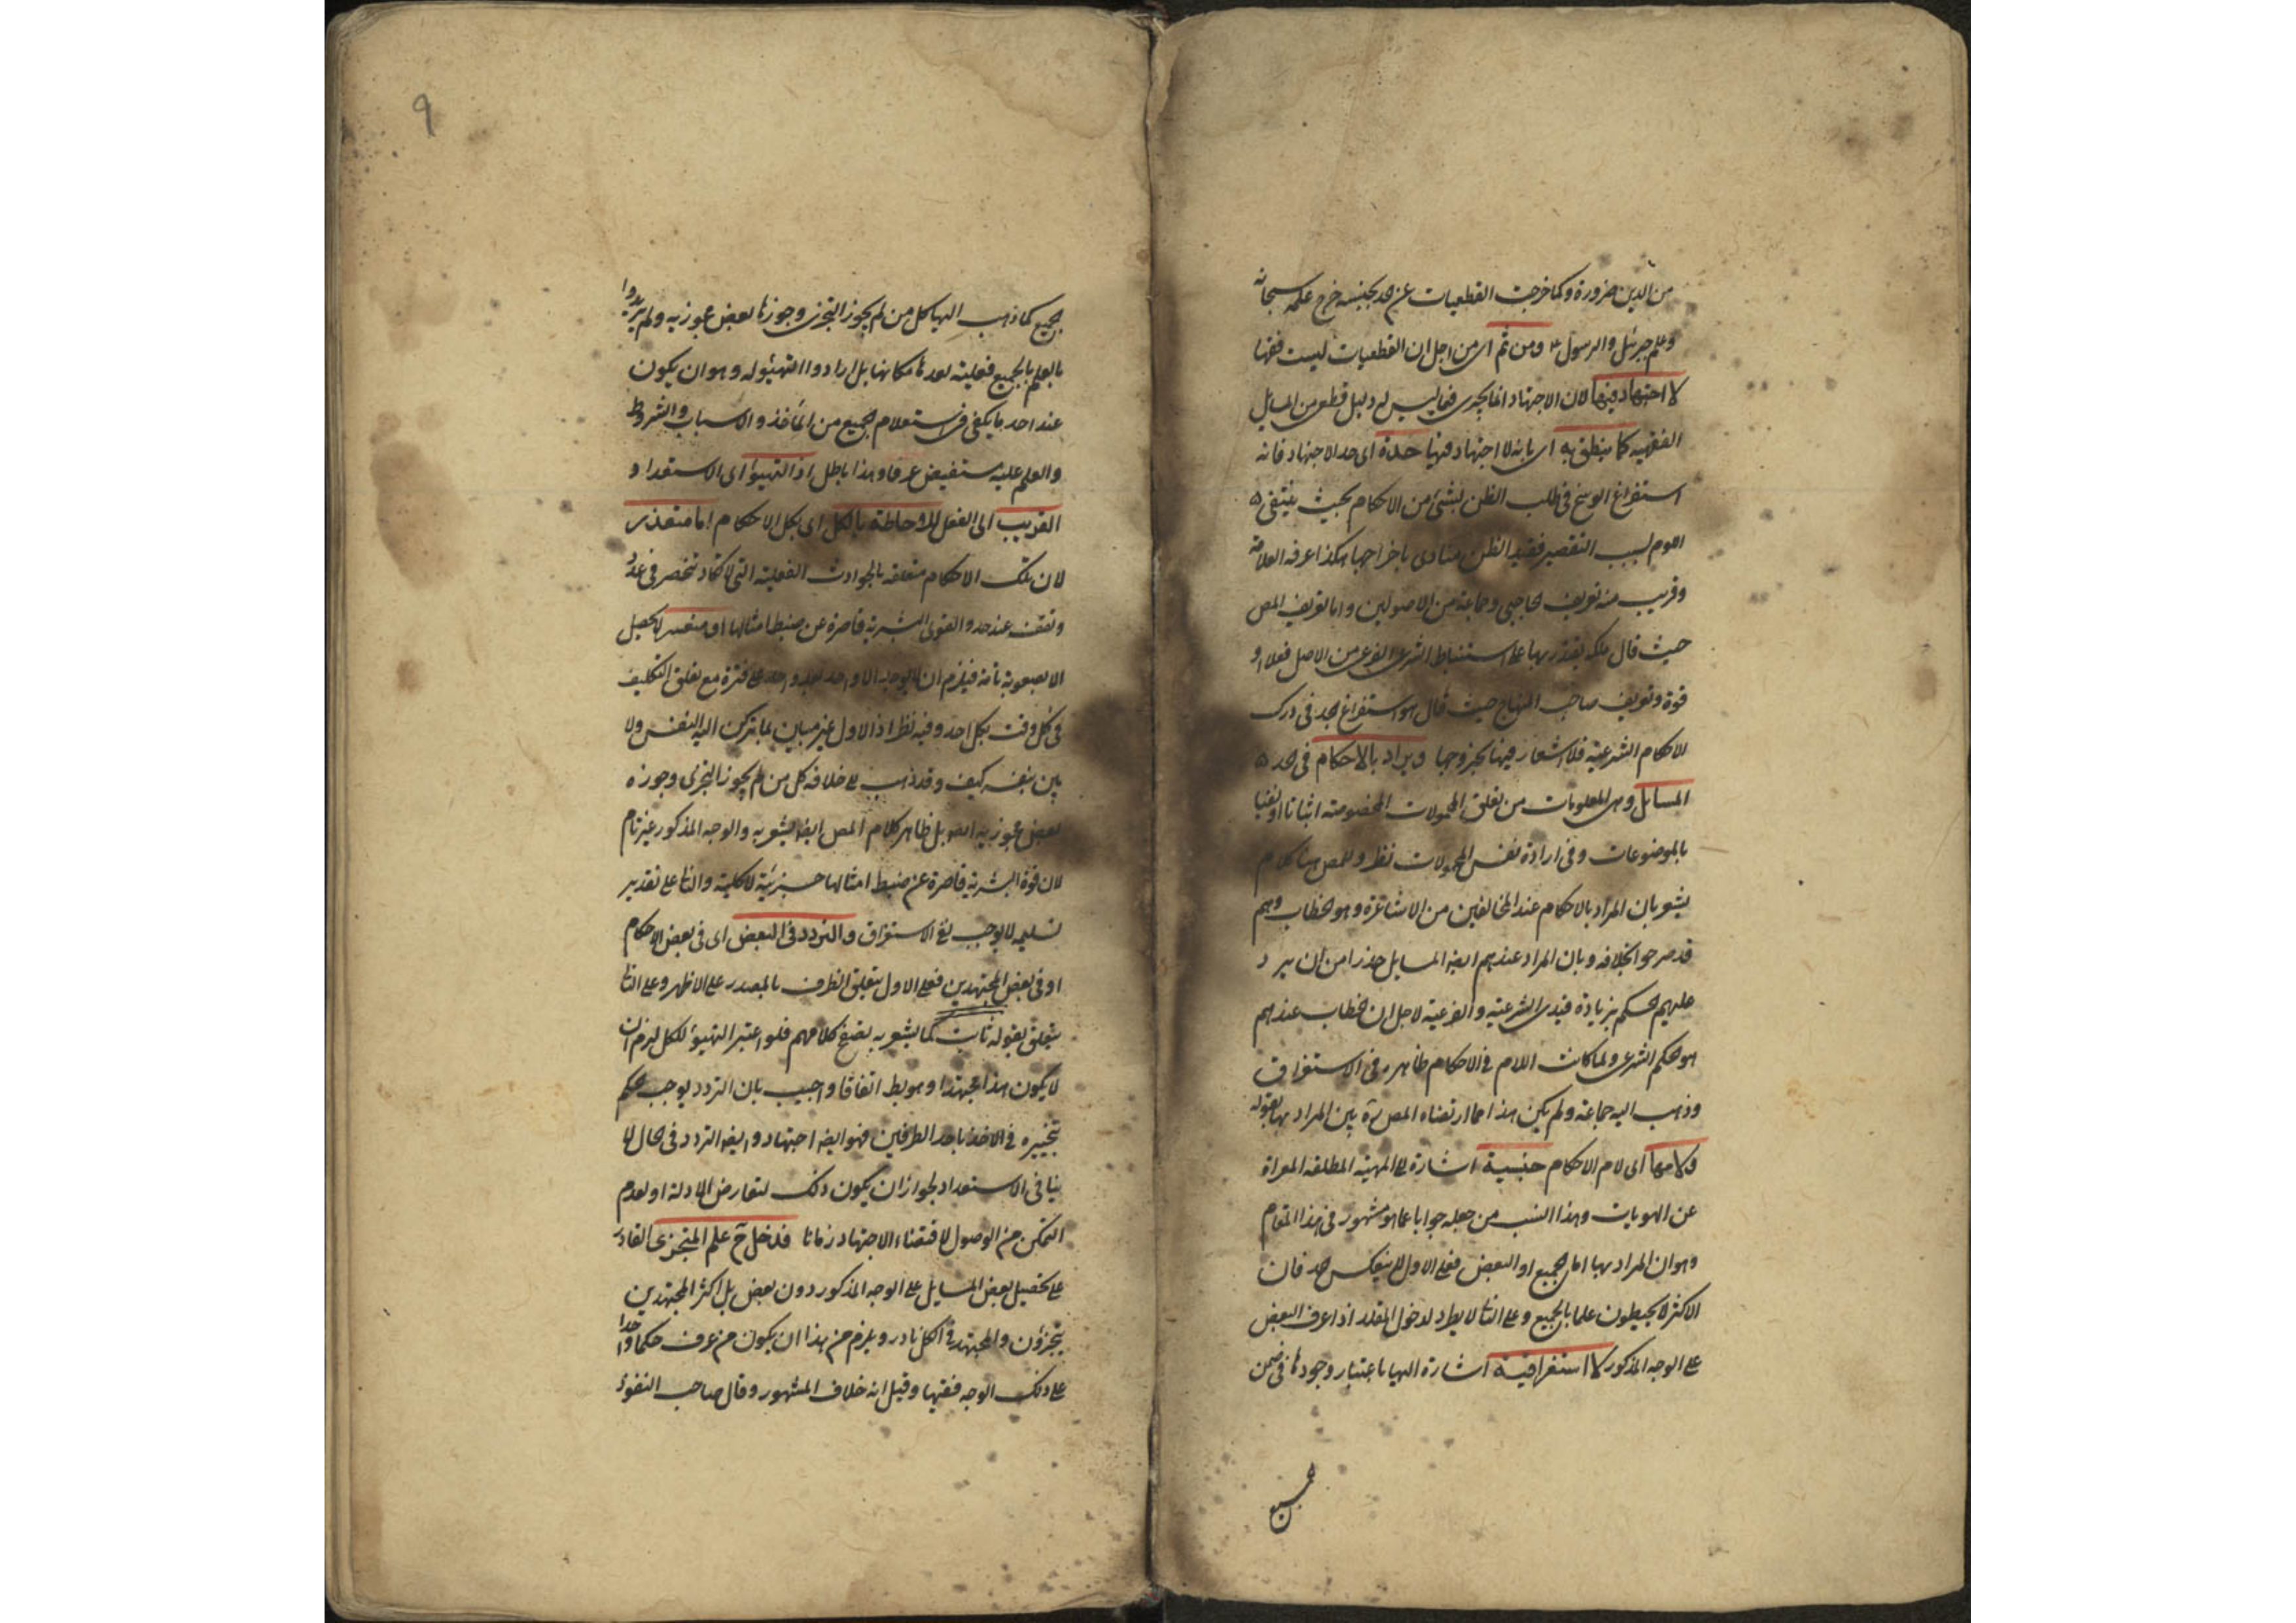 من الدين ضرورة وكما خرجت القطعيات عن حد بجنسه خرج علمه سبحانه
وعلم جبرئيل والرسول ومن ثم اى من اجل ان القطعيات ليست فقها
لا اجتهاد فيها لان الاجتهاد انما يجرى فيما ليس له دليل قطعى من المسايل
الفقهيه كما ينطق به اى بانه لا اجتهاد فيها حده اى حد الاجتهاد فانه
استفراغ الوسع فى طلب الظن بشئ من الاحكام بحيث ينتفى
اللوم بسبب التقصير فقيد الظن ينادى باخراجها هكذا عرفه العلامة
وقريب منه تعريف الحاجبى وجماعة من الاصولين واما تعريف المص
حيث قال ملكه يقتدر بها على استنباط الشرعى الفرعى من الاصل فعلا او
قوة وتعريف صاحب المنهاج حيث قال هو استفراغ الجهد فى درك
الاحكام الشرعية فلا اشعار فيهما بخروجها ويراد بالاحكام فى حده
المسايل وهى المعلومات من تعلق المحمولات المخصوصة اثباتا او نفيا
بالموضوعات وفى ارادة نفس المحمولات نظر وللمص هنا كلام
يشعر بان المراد بالاحكام عند المخالفين من الاشاعرة هو الخطاب وهم
قد صرحوا بخلافه وبان المراد عندهم ايضا المسايل حذرا من ان يرد
عليهم الحكم بزيادة قيدى الشرعية والفرعية لاجل ان الخطاب عندهم
هو الحكم الشرعى ولما كانت اللام فى الاحكام ظاهره فى الاستغراق
وذهب اليه جماعة ولم يكن هذا مما ارتضاه المص ره بين المراد بها بقوله
ولامها اى لام الاحكام جنسية اشارة الى المهية المطلقه المعراة
عن الهويات وهذا انسب من جعله جوابا عما هو مشهور فى هذا المقام
وهو ان المراد بها اما الجميع او البعض فعلى الاول لا ينعكس الحد فان
الاكثر لا يحيطون علما بالجميع وعلى الثانى لا يطرد لدخول المقلد اذا عرف البعض
على الوجه المذكور لا استغراقية اشارة اليها باعتبار وجودها فى ضمن
الجميع كما ذهب اليها كل من لم يجوز التجزى وجوزها بعض مجوزيه ولم يريدوا
بالعلم بالجميع فعليته لعدم امكانها بل ارادوا التهيؤ له وهو ان يكون
عند احد ما يكفى فى استعلام الجميع من المآخذ والاسباب والشروط
والعلم عليه مستفيض عرفا وهذا باطل اذ التهيؤ اى الاستعداد
القريب الى الفعل للاحاطة بالكل اى بكل الاحكام اما متعذر
لان تلك الاحكام متعلقه بالحوادث الفعلية التى لا تكاد تنحصر فى عدد
وتقف عند حد والقوى البشرية قاصرة عن ضبط امثالها او متعسر لا يحصل
الا بصعوبة تامة فيلزم ان لا يوجد الا واحد بعد واحد على فترة مع تعلق التكليف
فى كل وقت بكل احد وفيه نظر اذ الاول غير مبين بما تركن اليه النفس ولا
بين بنفسه كيف وقد ذهب على خلافه كل من لم يجوز التجزى وجوزه
بعض مجوزيه ايضا بل ظاهر كلام المص ايضا يشعر به والوجه المذكور غير تام
لان قوة البشرية قاصرة عن ضبط امثالها جزئية لا كلية والثانى على تقدير
تسليمه لا يوجب نفى الاستغراق والتردد فى البعض اى فى بعض الاحكام
او فى بعض المجتهدين فعلى الاول يتعلق الظرف بالمصدر على الاظهر وعلى الثانى
يتعلق بقوله ثابت كما يشعر به بعض كلامهم فلو اعتبر التهيؤ للكل لزم ان
لا يكون هذا مجتهدا وهو بط اتفاقا واجيب بان التردد يوجب حكم
تخييره فى الاخذ باحد الطرفين فهو ايضا اجتهاد وايضا التردد فى الحال لا
ينافى الاستعداد لجواز ان يكون ذلك لتعارض الادلة او لعدم
التمكن من الوصول لاقتضاء الاجتهاد زمانا فدخل ح علم المتجزى القادر
على تحصيل بعض المسايل على الوجه المذكور دون بعض بل اكثر المجتهدين
يتجزؤن والمجتهد فى الكل نادر ويلزم من هذا ان يكون من عرف حكما واحدا
على ذلك الوجه فقيها وقيل انه خلاف المشهور وقال صاحب النقود
الجميع
٩